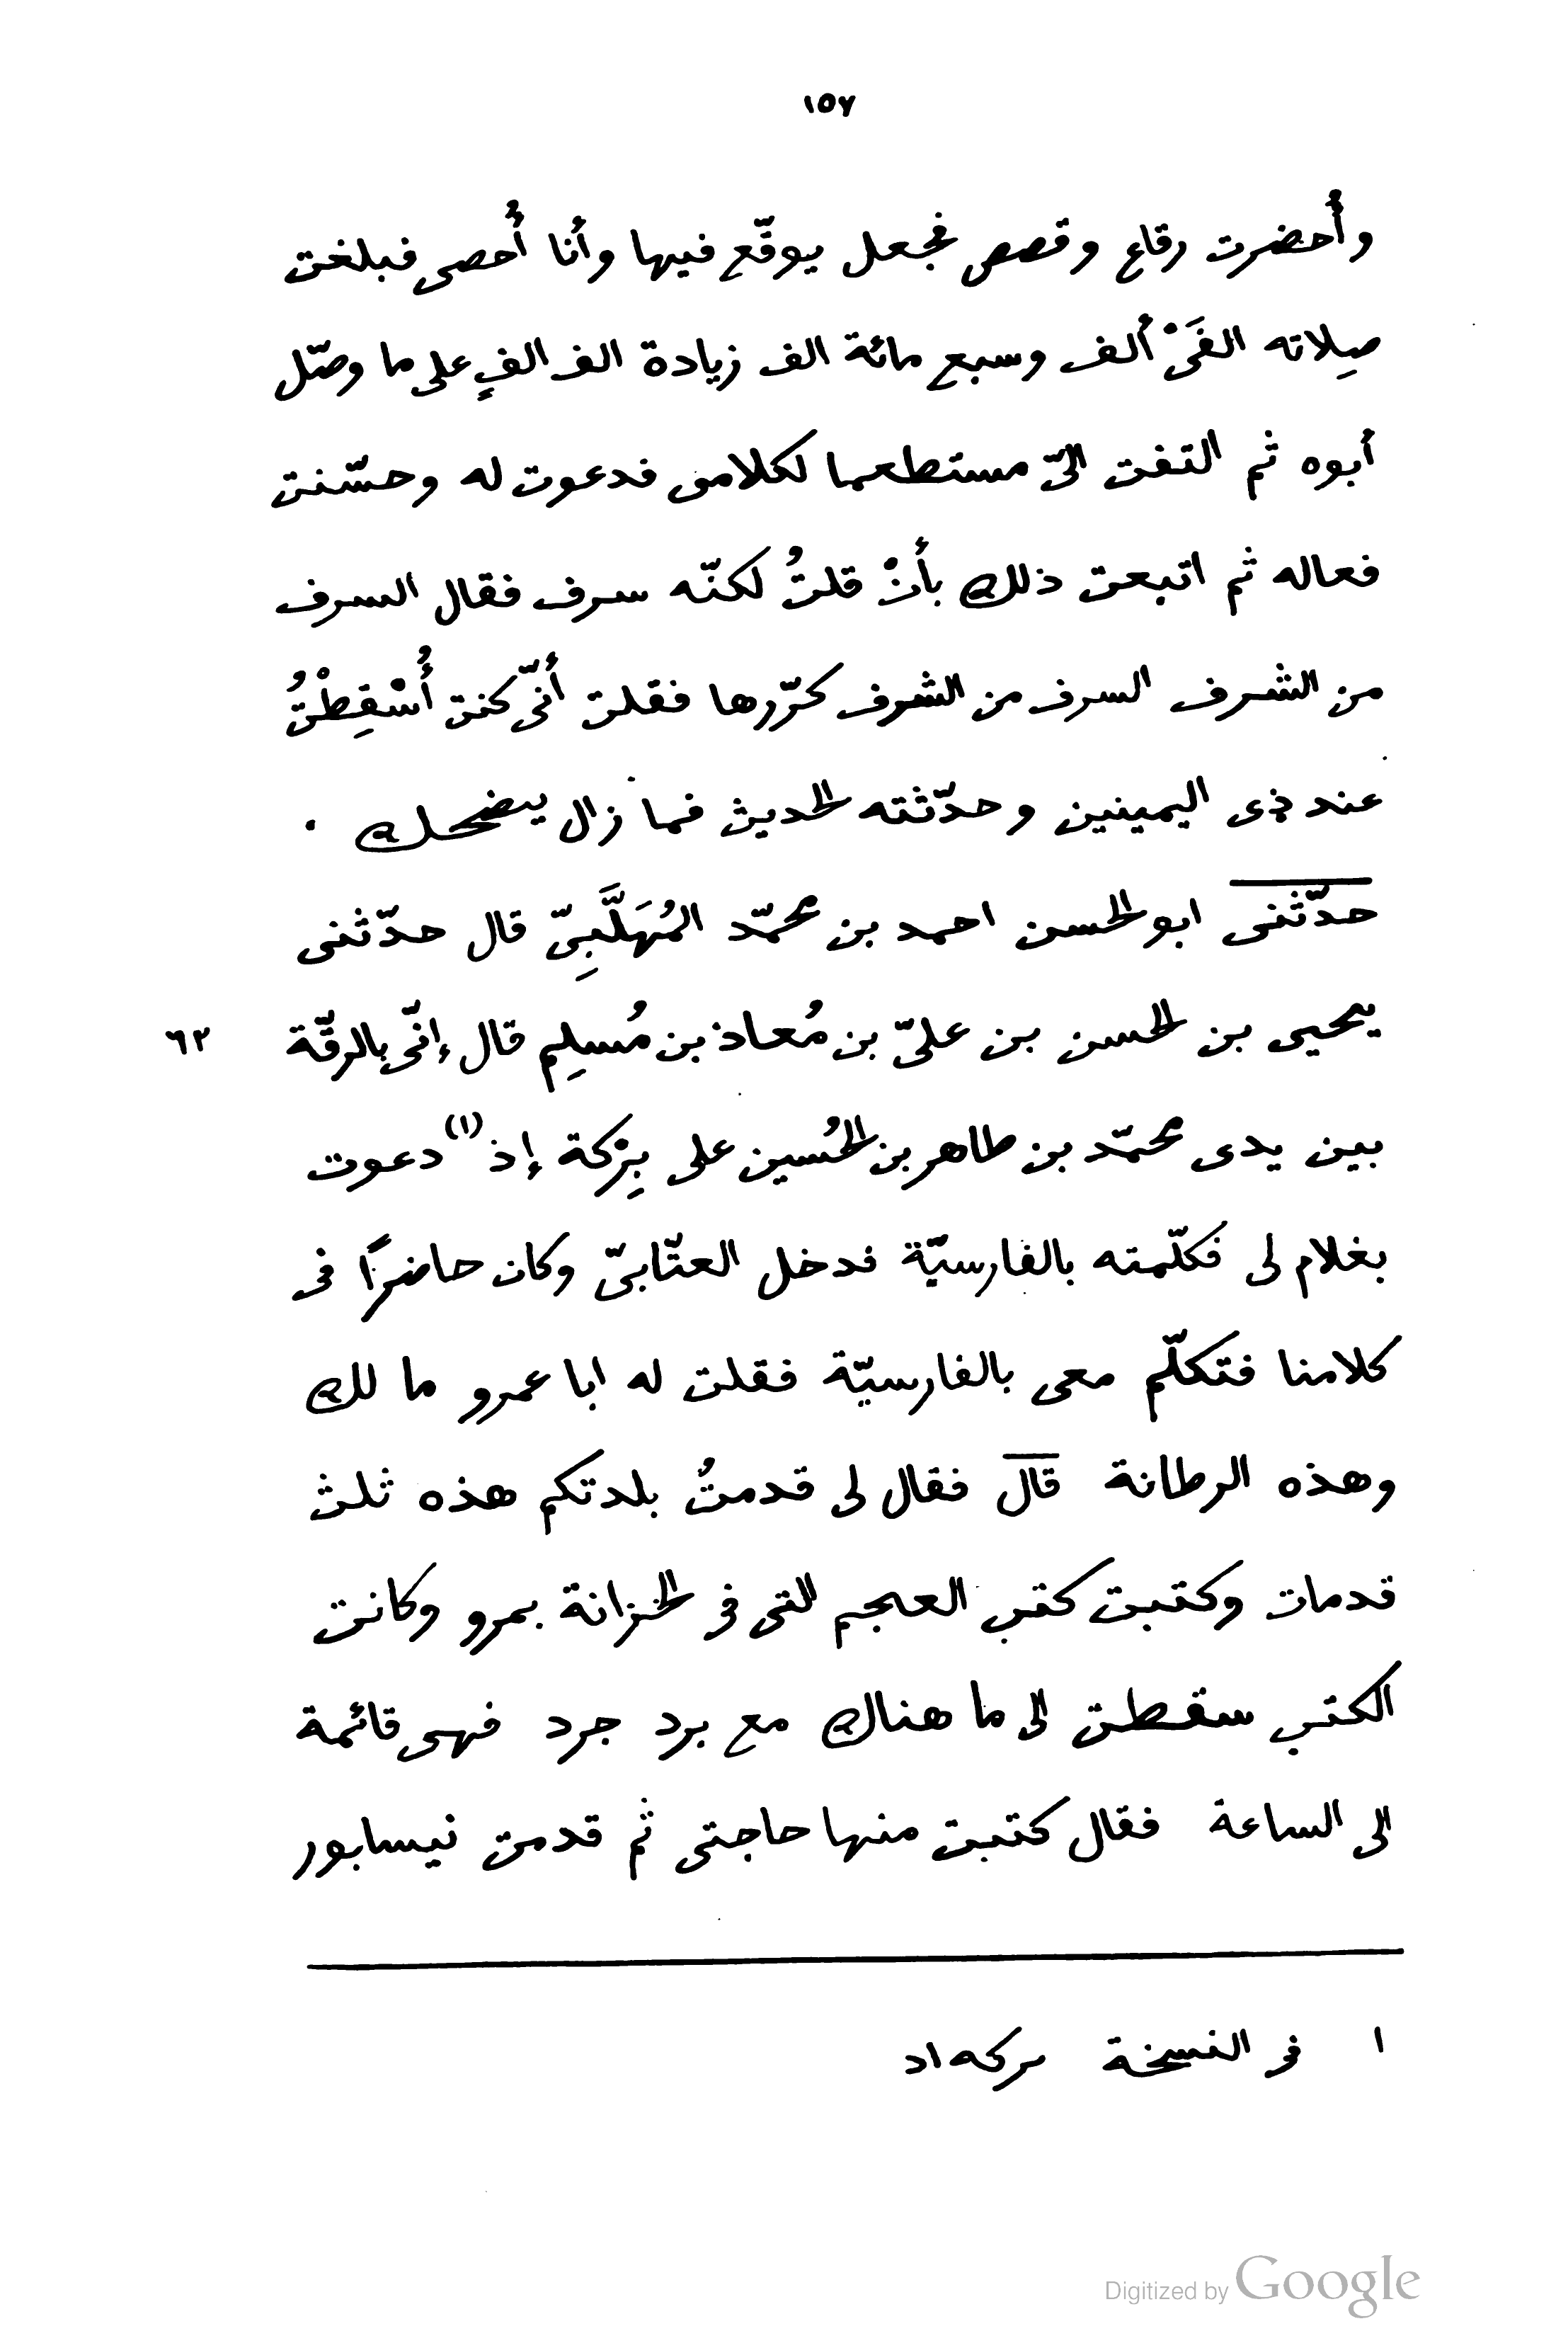 ١٥٧
وأُحضرت رقاع وقصص فجعل يوقّع فيها وأنا أُحصى فبلغت
صِلاته الفَىْ ألف وسبع مائة الف زيادة الف الفٍ على ما وصّل
أبوه ثم التفت الىّ مستطعما لكلامى فدعوت له وحسّنت
فعاله ثم اتبعت ذلك بأنْ قلتُ لكنّه سرف فقال السرف
من الشرف السرف من الشرف كرّرها فقلت أنّى كنت أُسْقِطْتُ
عند ذى اليمينين وحدّثته الحديث فما زال يضحك .
حدّثنى ابو الحسن احمد بن محمّد المُهَلَّبِىّ قال حدّثنى
يحيى بن الحسن بن علىّ بن مُعاذ بن مُسلِم قال إنّى بالرقّة
٦٢
بين يدى محمّد بن طاهر بن الحُسين على بِرْكة إذ (١) دعوت
بغلام لى فكلّمته بالفارسيّة فدخل العتّابىّ وكان حاضرًا فى
كلامنا فتكلّم معى بالفارسيّة فقلت له ابا عمرو ما لك
وهذه الرطانة قال فقال لى قدمتُ بلدتكم هذه ثلث
قدمات وكتبت كتب العجم التى فى الخزانة بمرو وكانت
الكتب سقطت الى ما هناك مع يزد جرد فهى قائمة
الى الساعة فقال كتبت منها حاجتى ثم قدمت نيسابور
١ فى النسخة مركه اد
Digitized by Google